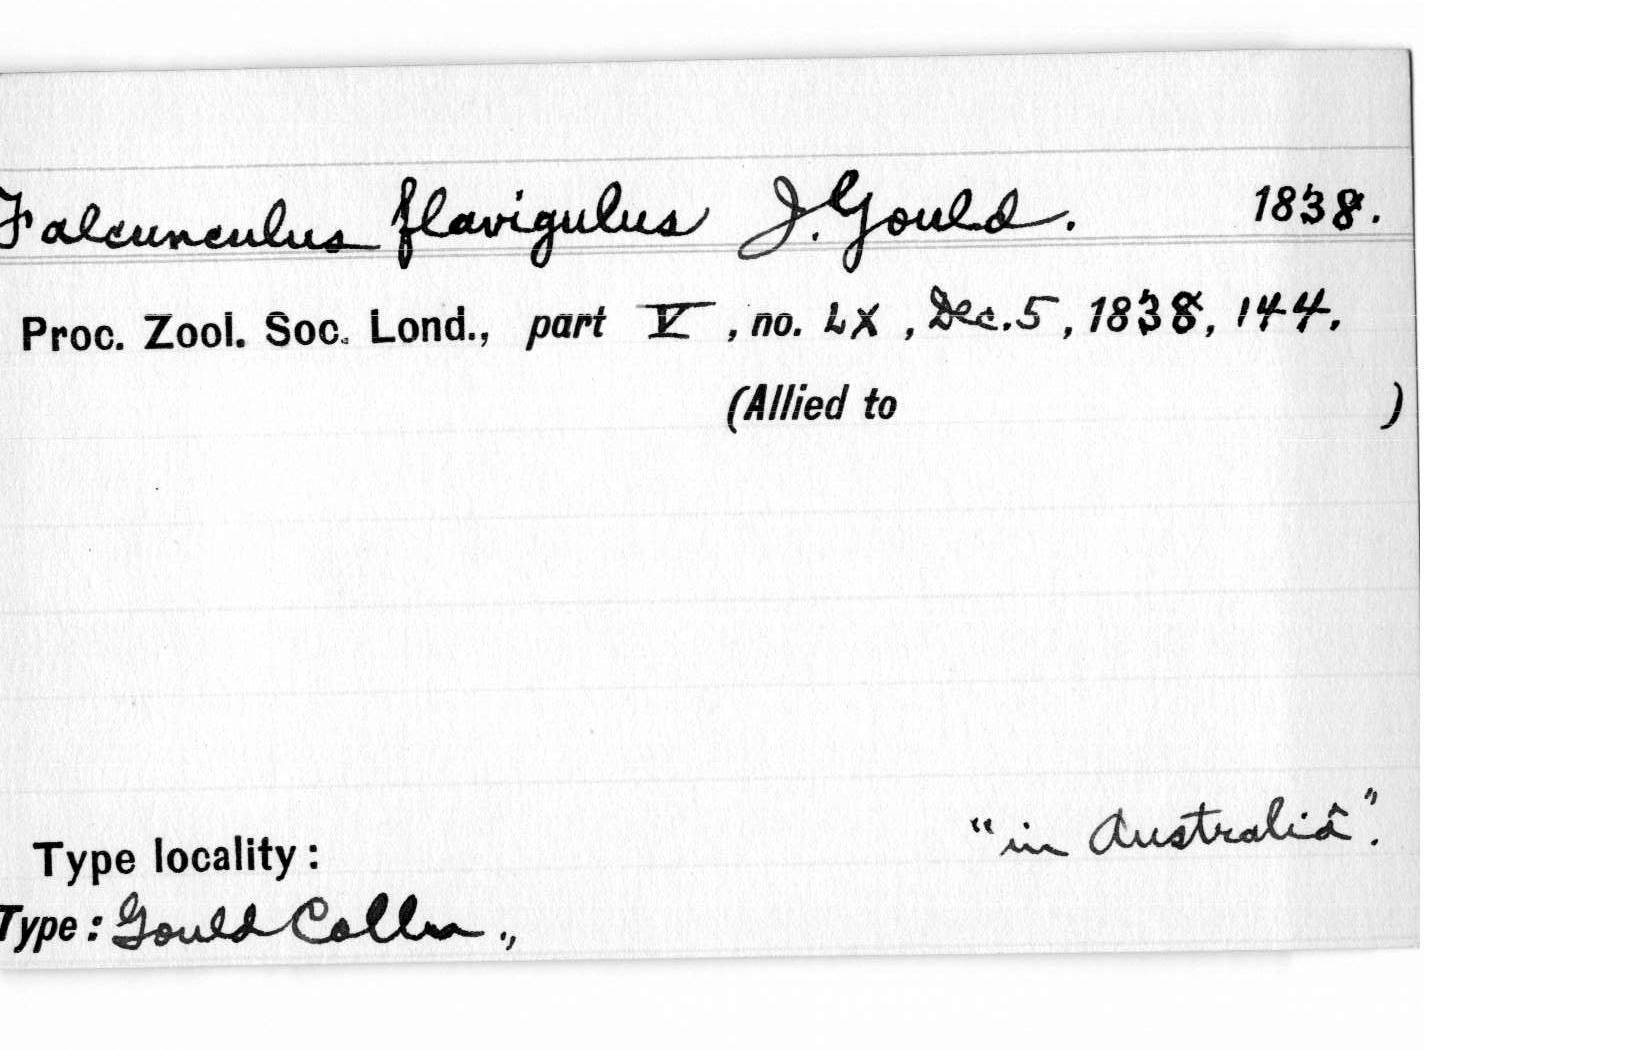 Falcunculus flavigulus J. Gould. 1838.
Proc. Zool. Soc. Lond., part V, no. LX, Dec. 5, 1838, 144.
(Allied to )
Type locality: "in Australiâ".
Type: Gould Colln.,